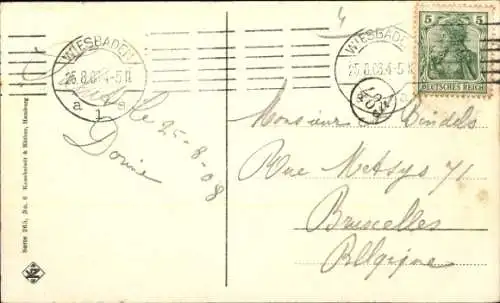 WIESBADEN
25.8.08.4-5N
a 1 s
WIESBADEN
25.8.08.4-5N
5 5
DEUTSCHES REICH
le
25-8-08
Monsieur
Rue Metsys 71
Bruxelles
Belgique
Serie 265, No. 6 Knackstedt & Näther, Hamburg